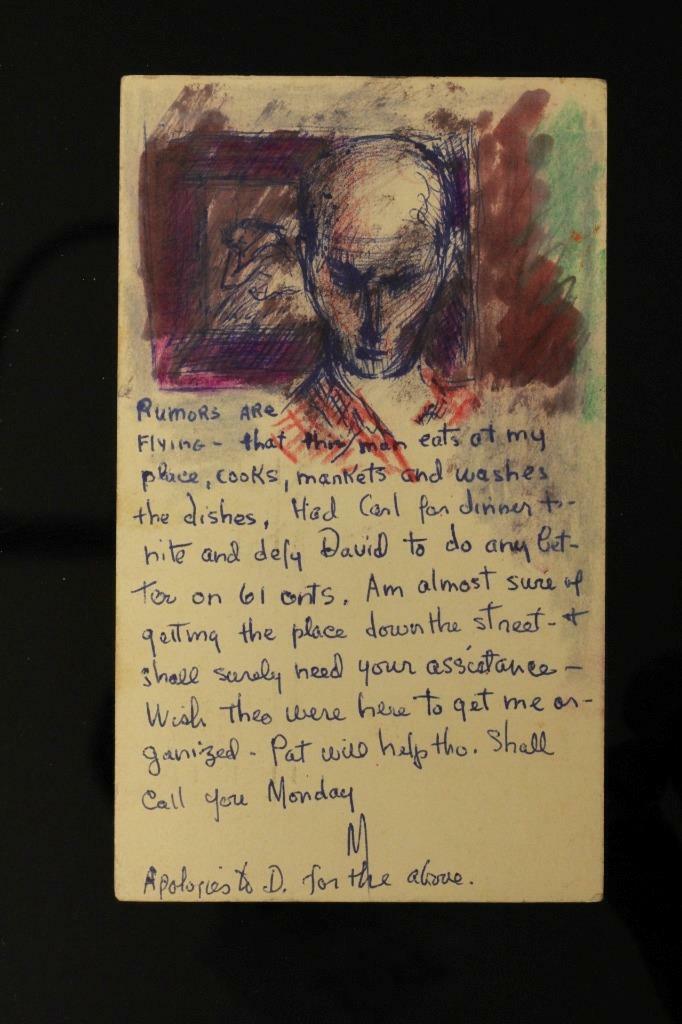 RUMORS ARE
FLYING - that this man eats at my
place, cooks, markets and washes
the dishes. Had Carl for dinner to-
nite and defy David to do any bet-
ter on 61 cnts. Am almost sure of
getting the place down the street - &
shall surely need your assistance -
Wish Theo were here to get me or-
ganized - Pat will help tho. Shall
call you Monday
M
Apologies to D. for the above.